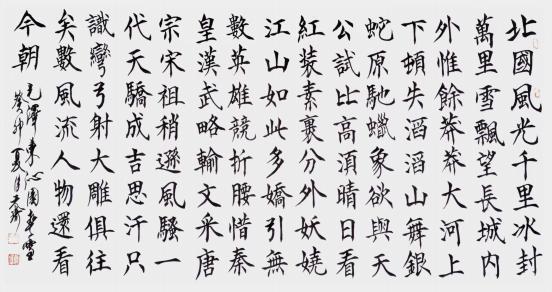 北國風光千里冰封
萬里雪飄望長城内
外惟餘莽莽大河上
下頓失滔滔山舞銀
蛇原馳蠟象欲與天
公試比高須晴日看
紅装素裹分外妖嬈
江山如此多嬌引無
數英雄競折腰惜秦
皇漢武略輸文采唐
宗宋祖稍遜風騷一
代天驕成吉思汗只
識彎弓射大雕俱往
矣數風流人物還看
今朝
毛澤東沁園春雪
癸卯夏